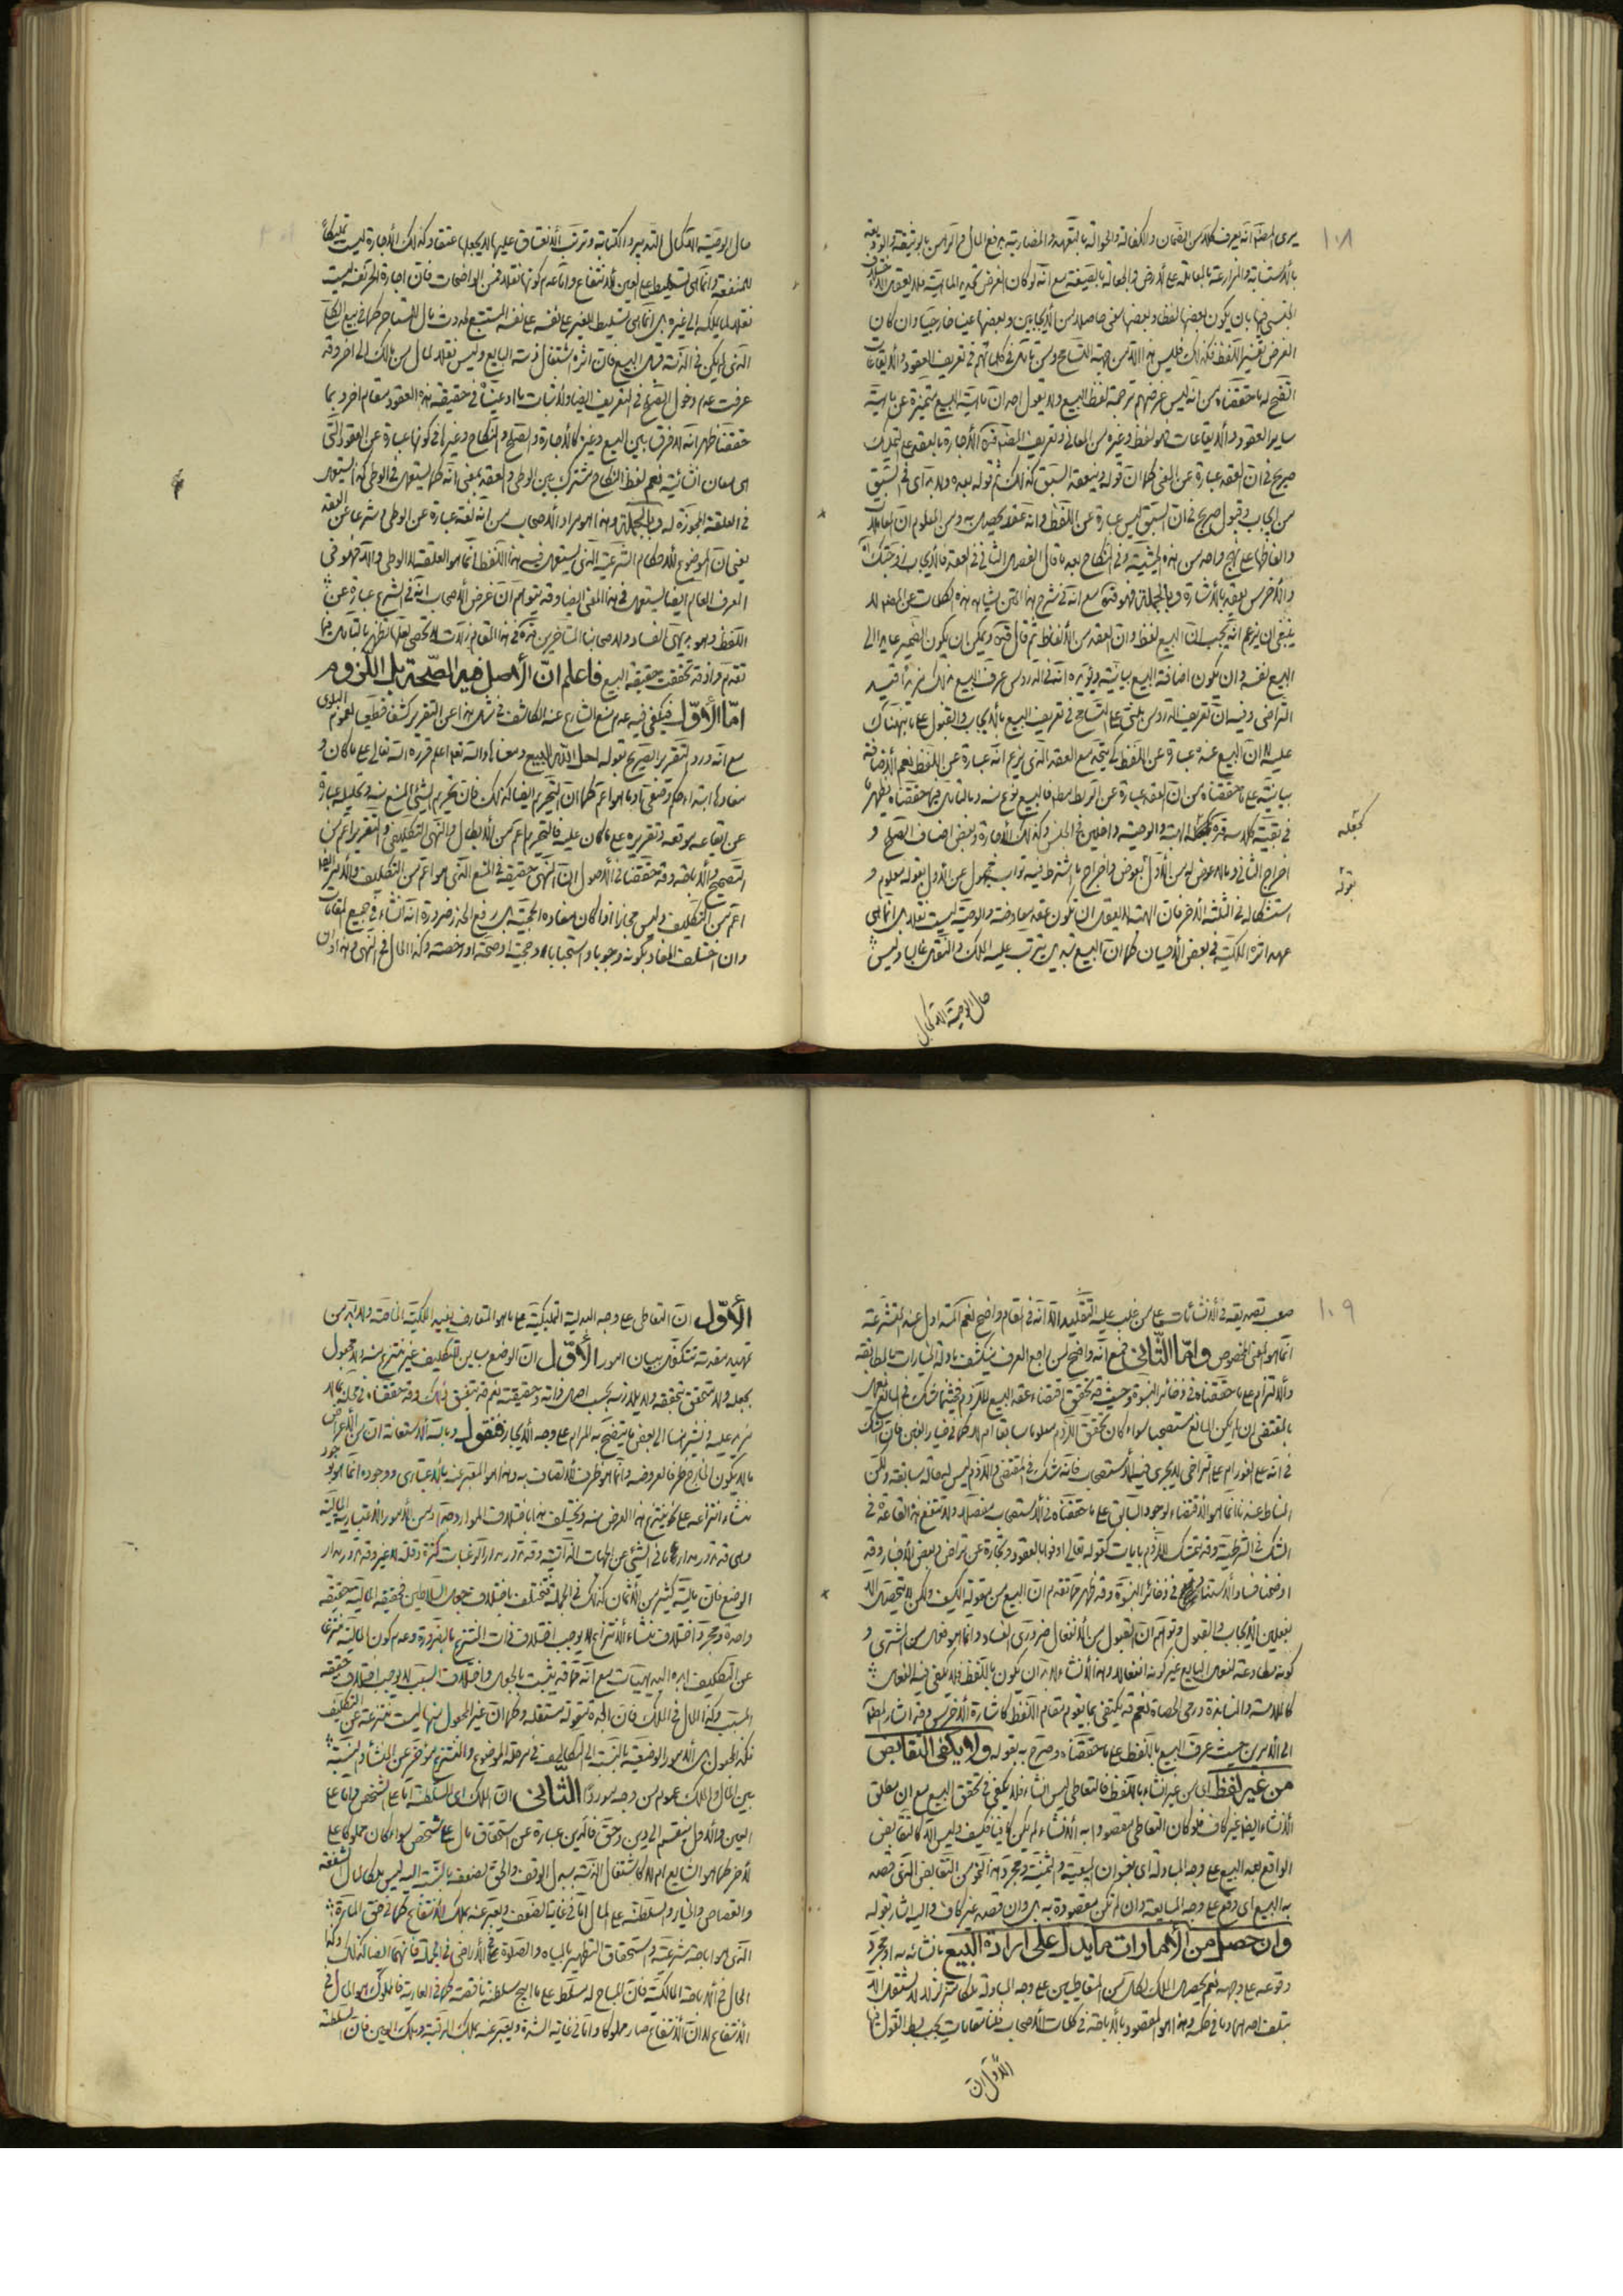 ١٠٨
يرى المصنف انه يعرف كلا من الضمان والكفالة والحوالة بالتعهد والمضاربة بدفع المال والرهن بالوثيقة والوديعة
بالاستنابة والمزارعة بالمعاملة على الارض والجعالة بالصيغة مع انه لو كان الغرض تحديد الماهية فلا يعقل
الجنسى فيها بان يكون بعضها لفظا وبعضها معنى حاصلا من الايجابين وبعضها عينا خارجيا وان كان
الغرض تفسير اللفظ فكذلك فليس هذا الا من جهة التسامح ومن تامل فى كلماتهم فى تعريف العقود والايقاعات
اتضح له ما حققناه من انه ليس غرضهم ترجمة لفظ البيع ولا يقول احد ان ماهية البيع متميزة عن ماهية
ساير العقود والايقاعات هو لفظ وغيره من المعانى وتعريف المصنف الاجارة بالعقد على التمليك
صريح فى ان العقد عبارة عن المعنى كما ان قوله وينعقد السبق كذلك ثم قوله بعده ولا بد اى فى السبق
من ايجاب وقبول صريح فى ان السبق ليس عبارة عن اللفظ وانه عقد يحصل به ومن المعلوم ان المعاملات
والفاظها على نهج واحد من هذه الحيثية وفى النكاح بعد ما قال الفصل الثانى فى العقد فالايجاب زوجتك
والاخرس يعقد بالاشارة وبالجملة فهو مع انه فى شرح هذا المتن بشاهد هذه الكلمات عن المصنف لا
ينبغى ان يزعم انه يجب ان البيع لفظ وان العقد من الالفاظ ثم قال ويمكن ان يكون الضمير عايدا الى
البيع نفسه وان يكون اضافة البيع بيانية ويؤيده انه فى الدروس عرف البيع بذلك مزيدا قيد
التراضى وفيه ان تعريف الدروس مبنى على التسامح فى تعريف البيع بالايجاب والقبول على ما نبهناك
عليه لان البيع عنده عبارة عن اللفظ كى يتحد مع العقد الذى يزعم انه عبارة عن اللفظ نعم الاضافة
بيانية على ما حققناه من ان العقد عبارة عن الربط فالبيع نوع منه وبالتامل فيما حققناه يظهر ما
فى بقية كلامه الهبة والوصية داخلين فى الجنس وكذلك الاجارة وبعض اصناف الصلح و
اخراج الثانى وما لا عوض له من الاول بعوض واخراج ما اشترط فيه ثواب مجهول عن الاول بقوله معلوم و
استشكاله فى الثلثة الاخر فان الهبة لا يعقل ان تكون عقد معاوضة والوصية ليست نقلا بل انما هى
عهد اثره الملكية فى بعض الاحيان كما ان البيع تبديل يترتب عليه الملك والنقل غالبا وليس
كجعله
بقوله
حال الوصية الا كحال
حال الوصية الا كحال التدبير والكتابة وترتب الانعتاق عليها لا يجعلها عتقا وكذلك الاجارة ليست تمليكا
للمنفعة وانما هى تسليط على العين للانتفاع واما عدم كونها نقلا فمن الواضحات فان اجارة الحر نفسه ليست
نقلا لما يملكه الى غيره بل انما هى تسليط للغير على نفسه المستتبع لحدوث مال للمستاجر كما فى بيع الكلى
الذى لم يكن فى الذمة قبل البيع فان اثره اشتغال ذمة البايع وليس نقلا لمال من مالك الى اخر وقد
عرفت عدم دخول الصلح فى التعريف ايضا ولاثبات ما ادعيناه فى حقيقة هذه العقود مقام اخر وبما
حققنا ظهر انه لا فرق بين البيع وغيره كالاجارة والصلح والنكاح وغيرها فى كونها عبارة عن العقود التى
هى معان انشائية نعم لفظ النكاح مشترك بين الوطى والعقد بمعنى انه كما يستعمل فى الوطى كذا يستعمل
فى العلقة المجوزة له وبالجملة وهذا هو مراد الاصحاب من انه لغة عبارة عن الوطى وشرعا عن العقد
يعنى ان الموضوع للاحكام الشرعية الذى يستعمل فيه هذا اللفظ انما هو العلقة لا الوطى والا فهو فى
العرف العام ايضا يستعمل فى هذا المعنى ايضا وقد يتوهم ان غرض الاصحاب انه فى الشرع عبارة عن
اللفظ وهو بديهى الفساد ولاصحابنا المتاخرين فى هذا المقام زلات لا تحصى لعلها تظهر بالتامل فيما
تقدم واذ قد تحققت حقيقة البيع فاعلم ان الاصل فيه الصحة بل اللزوم
اما الاول فيكفى فيه عدم منع الشارع عنه الكاشف فى مثل هذا عن التقرير كشفا قطعيا لعموم البلوى
مع انه ورد التقرير الصريح بقوله احل الله البيع ومعناه والله تعالى اعلم قرره الله تعالى على ما كان و
مفادها ابتداء حكم وضعى او ما هو اعم كما ان التحريم ايضا كذلك فان تحريم الشئ المنع منه وتحليله عبارة
عن ايقاعه موقعه وتقريره على ما كان عليه فالتحريم اعم من الابطال والنهى التكليفى والتقرير اعم من
التصحيح والاباحة وقد حققنا فى الاصول ان النهى حقيقة فى المنع الذى هو اعم من التكليف والامر ايضا
اعم من التكليف وليس مجازا اذا كان مفاده الحجية بل رفع الحظر ضرورة انه انشاء فى جميع المقامات
وان اختلف المفاد بكونه وجوبا واستحبابا وحجية وصحة او رخصة وكذا الحال فى النهى وهذا وان
١٠٩
صعب تصديقه فى الانشائيات على من غلب عليه التقليد الا انه فى المقام واضح نعم المتداول عند المتشرعة
انما هو المعنى المخصوص واما الثانى فمع انه واضح لمن راجع العرف ينكشف بادلة الخيارات بالمطابقة
والالتزام على ما حققناه فى ذخائر النبوة وحيث قد تحقق اقتضاء عقد البيع للزوم فحيثما شك فى المانع يعمل
بالمقتضى ان لم يكن المانع مستصحبا سواء كان تحقق اللزوم معلوما سابقا ام لا كما فى خيار الغبن فان الشك
فى انه على الفور ام على التراخى لا يجرى فيه الاستصحاب فانه شك فى المقتضى واللزوم ليس له حالة سابقة ولكن
المناط عندنا انما هو الاقتضاء لوجود السابق على ما حققناه فى الاستصحاب مفصلا ولا تنتقض هذه القاعدة فى
الشك فى الشرطية وقد يتمسك للزوم بايات كقوله تعالى اوفوا بالعقود وتجارة عن تراض وبعض الاخبار وقد
اوضحنا فساد الاستناد فى ذخائر النبوة وقد ظهر مما تقدم ان البيع من مقولة الكيف ولكن لا يتحصل الا
بفعلين الايجاب والقبول وتوهم ان القبول من الانفعال ضرورى الفساد وانما هو فعل من المشترى و
كونه مطاوعة لفعل البايع غير كونه انفعالا وهذا الانشاء لا بد ان يكون باللفظ فلا يكفى فيه الفعل
كالملامسة والمنابذة ورمى الحصاة نعم قد يكتفى بما يقوم مقام اللفظ كاشارة الاخرس وقد اشار المصنف
الى الامرين حيث عرف البيع باللفظ على ما حققناه وصرح به بقوله ولا يكفى التقابض
من غير لفظ اى من غير انشاء باللفظ فالتعاطى ليس انشاء فلا يكفى فى تحقق البيع مع ان مطلق
الانشاء ايضا غير كاف فلو كان التعاطى مقصودا به الانشاء لم يكن كافيا فكيف وليس الا كالتقابض
الواقع بعد البيع على وجه المبادلة اى بعنوان المبيعية والثمنية ومجردا من التقابض الذى قصد
به البيع اى وقع على وجه المبايعة وان لم تكن مقصودة به بل وان قصد غير كاف واليه اشار بقوله
وان حصل من الامارات ما يدل على ارادة البيع بانشائه به او مجرد
وقوعه على وجهه نعم يحصل الملك لكل من المتعاطيين على وجه المبادلة ملكا متزلزلا لا يستقر الا
بتلف احدهما وما فى حكمه وهذا هو المقصود بالاباحة فى كلمات الاصحاب فهنا مقامات يجب بسط القول فيها
الاول ان
الاول ان التعاطى على وجه البدلية التمليكية على ما هو المتعارف يفيد الملكية الناقصة ولا بد من
تمهيد مقدمة تتكفل ببيان امور الاول ان الوضع مباين للتكليف غير منتزع منه ولا مجعول
بجعله ولا متحقق بتحققه ولا يلازمه بحسب اصل ذاته وحقيقته نعم قد يتفق ذلك وقد حققناه فى محله بما لا
مزيد عليه ونشير هنا الى بعض ما يتضح به المرام على وجه الايجاز فنقول وبالله الاستعانة ان من الاعراض
ما لا يكون الخارج ظرفا لعروضه وانما هو ظرف للاتصاف به وهذا هو المعبر عنه بالاعتبارى ووجوده انما هو بوجود
منشاء انتزاعه على نحو ينتزع هذا العرض منه ويختلف هذا باختلاف الموارد وصحة ومن الامور الاعتبارية المالية
وهى قد تدور مدار ما فى الشئ من الجهات الذاتية وقد تدور مدار الرغبات كثرة وقلة لا غير وقد تدور مدار
الوضع فان مالية كثير من الاثمان كذلك فى الجملة تختلف باختلاف جعل السلاطين فحقيقة المالية حقيقة
واحدة ومجرد اختلاف منشاء الانتزاع لا يوجب اختلاف ذات المنتزع بالضرورة وعدم كون المالية منتزعا
عن التكليف من ابده البديهيات مع انه مما قد يثبت بالجعل واختلاف السبب لا يوجب اختلاف حقيقة
المسبب وكذا الحال فى الملك فان الحق مقولة مستقلة وكما ان غير المجعول منها ليست منتزعة عن التكليف
فكذا المجعول بل الامور الوضعية بالنسبة الى التكاليف فى مرحلة الموضوع والمنتزع مؤخر عن المنشاء والنسبة
بين المال والملك عموم من وجه موردا الثانى ان الملك اى السلطنة اما على الشخص واما على
العين والاول ينقسم الى دين وحق فالدين عبارة عن استحقاق مال على شخص سواء كان مملوكا على
الاخر كما هو الشايع ام لا كاشتغال الذمة ببدل الوقف والحق لضعفه بالنسبة اليه ليس ملكا لمال كالشفعة
والقصاص والخيار والسلطنة على المال اما فى غاية الضعف ويعبر عنه بملك الانتفاع كما فى حق المارة
الذى هو اباحة شرعية واستحقاق التطهير بالمياه والصلوة فى الاراضى فى الجملة فانهما ايضا كذلك وكذا
الحال فى الاباحة المالكية فان المباح له مسلط على ما ابيح سلطنة ناقصة كما فى العارية فالمملوك هو المال فى
الانتفاع لا ان الانتفاع صار مملوكا واما فى غاية الشدة ويعبر عنه بملك الرقبة وملك العين فان السلطنة